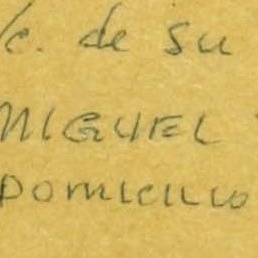 /c. de su
MIGUEL
DOMICILIO